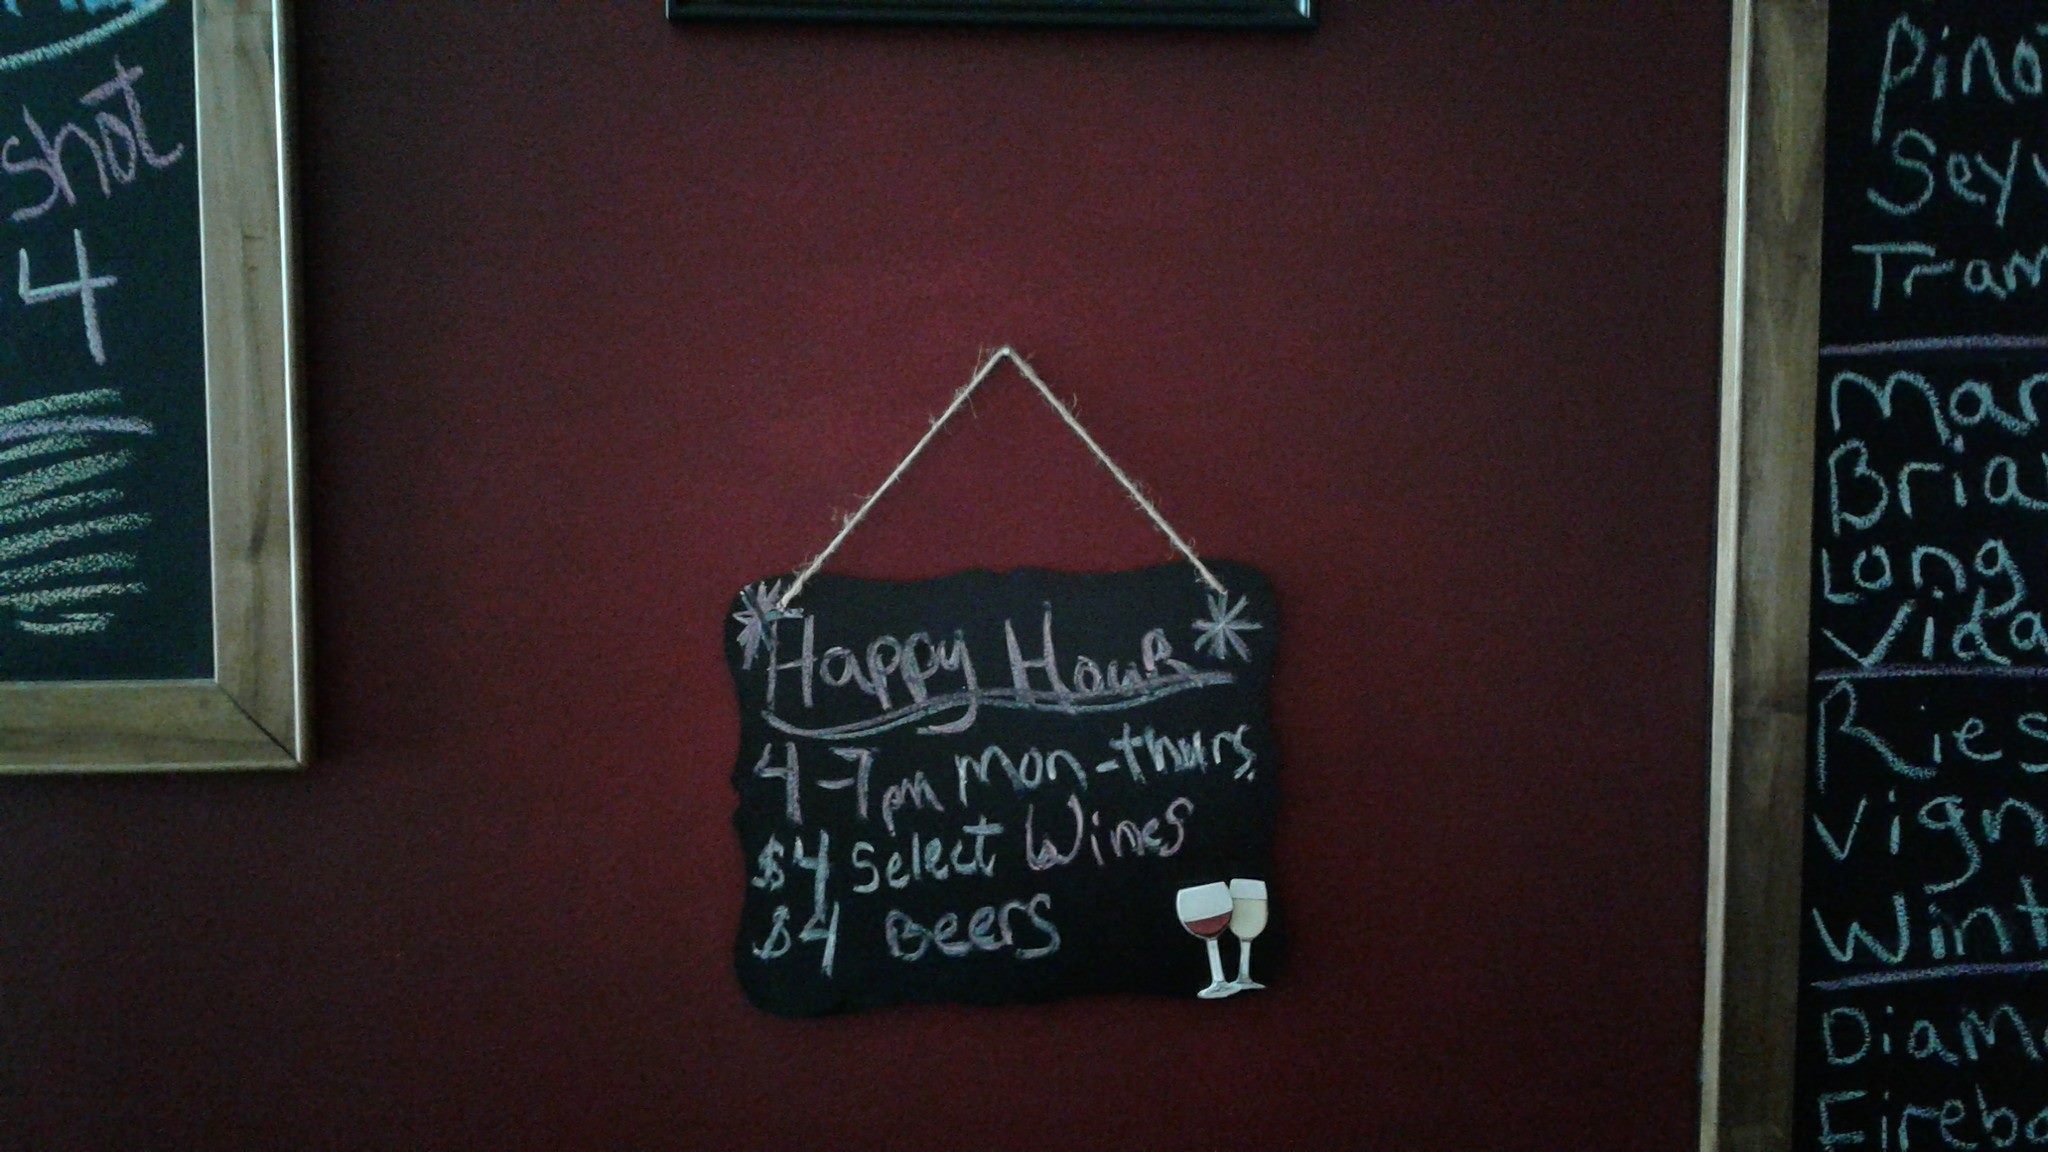 shot
4
Happy Hour
4-7pm Mon-thurs.
$4 Select Wines
$4 Beers
Pino
Sey
Tram
Mar
Bria
Long
Vida
Ries
Vign
Wint
Diam
Fireb